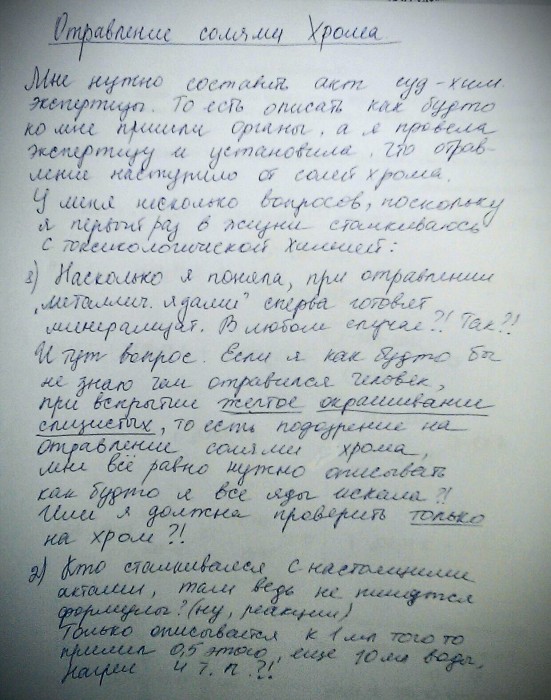 Отравление солями Хрома
Мне нужно составить акт суд-хим.
экспертизы. То есть описать как будто
ко мне пришли органы, а я провела
экспертизу и установила, что отрав-
ление наступило от солей хрома.
У меня несколько вопросов, поскольку
я первый раз в жизни сталкиваюсь
с токсикологической химией:
1) Насколько я поняла, при отравлении
„металлич. ядами" сперва готовят
минерализат. В любом случае?! Так?!
И тут вопрос. Если я как будто бы
не знаю чем отравился человек,
при вскрытие желтое окрашивание
слизистых, то есть подозрение на
отравление солями хрома,
мне всё равно нужно описывать
как будто я все яды искала?!
Или я должна проверить только
на хром?!
2) Кто сталкивался с настоящими
актами, там ведь не пишутся
формулы? (ну, реакции)
Только описывается к 1 мл того то
прилил 0,5 этого, еще 10 мл воды,
нагрел и т.п.?!